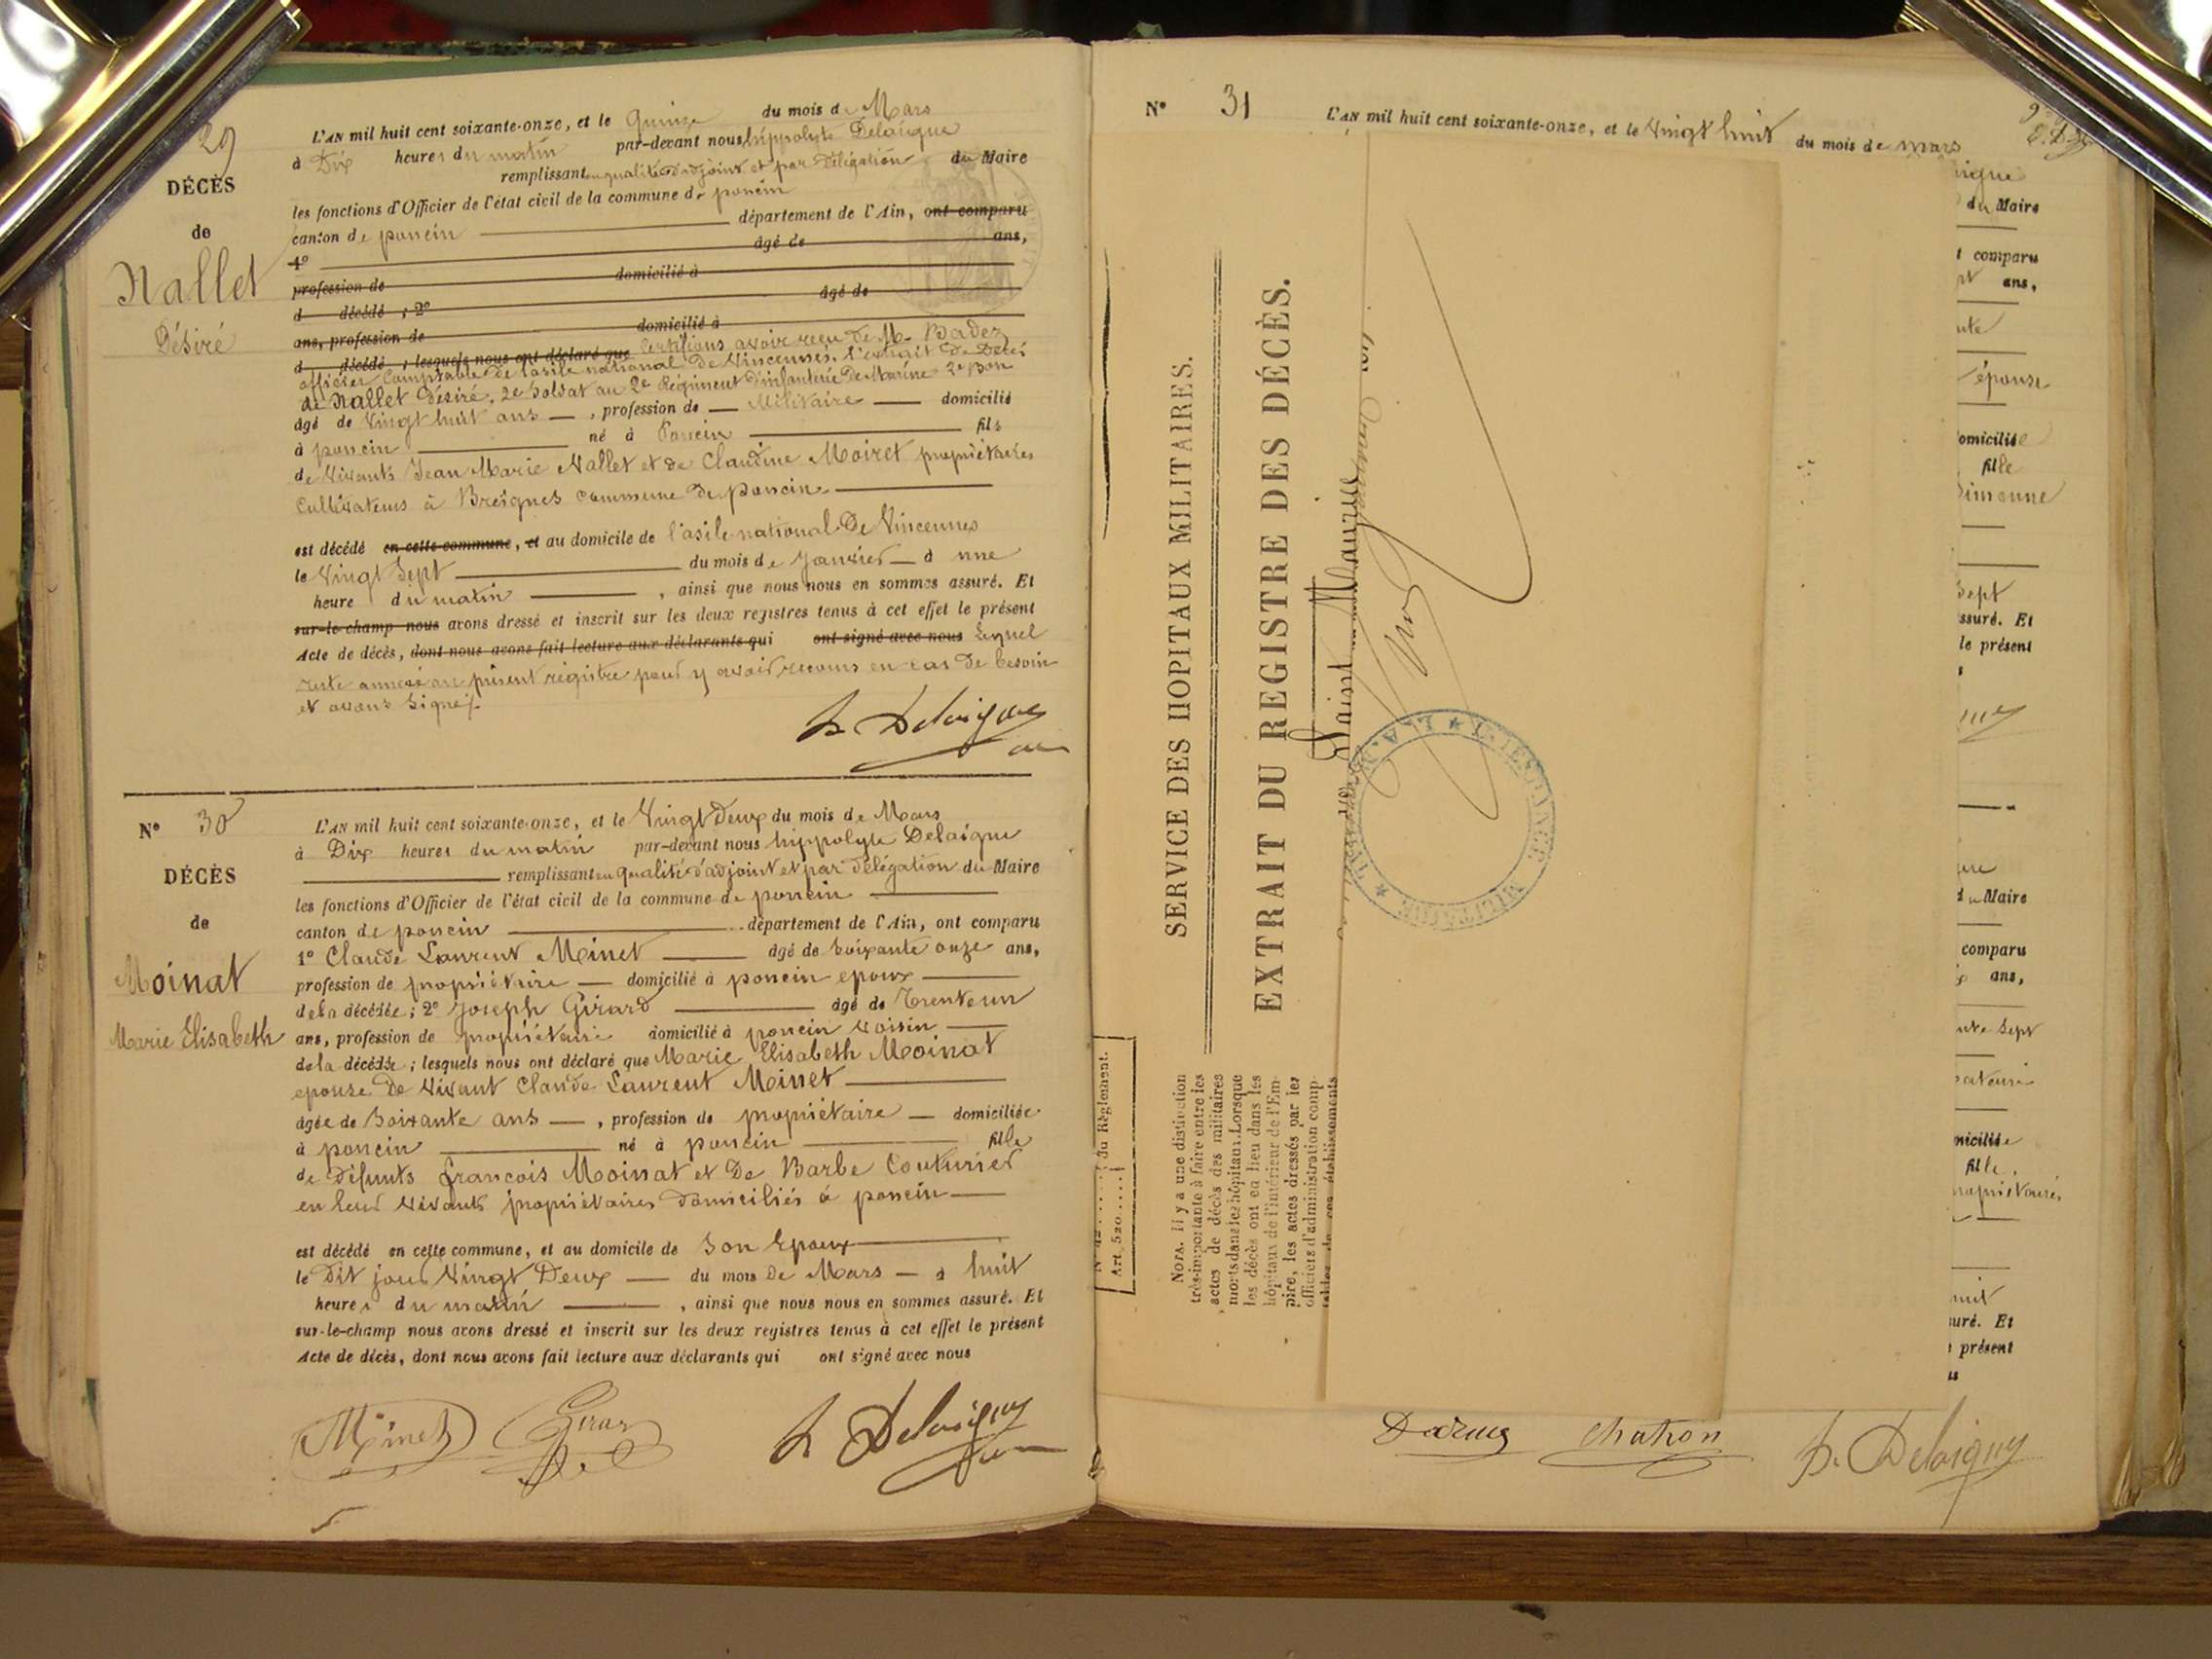 29
DÉCÈS
de
Nallet
Désiré
L'AN mil huit cent soixante-onze, et le quinze du mois de Mars
à Dix heures du matin par-devant nous hippolyte Delaigue
remplissant en qualité d'adjoint et par délégation du Maire
les fonctions d'Officier de l'état civil de la commune de poncin
canton de poncin département de l'Ain, ont comparu
1° âgé de ans,
profession de domicilié à
d décédé ; 2° âgé de
ans, profession de domicilié à
d décédé ; lesquels nous ont déclaré que Certifions avoir reçu de M. Badez
officier Comptable de l'asile national De Vincennes. l'extrait De Décès
de Nallet Désiré, 2e Soldat au 2e Régiment d'infanterie De Marine 2e Bon
âgé de Vingt huit ans , profession de Militaire domicilié
à poncin né à Poncin fils
de Vivants Jean Marie Nallet et de Claudine Moiret propriétaires
Cultivateurs à Breignes Commune De poncin
est décédé en cette commune, et au domicile de l'asile national De Vincennes
le Vingt Sept du mois de Janvier à une
heure du matin , ainsi que nous nous en sommes assuré. Et
sur-le-champ nous avons dressé et inscrit sur les deux registres tenus à cet effet le présent
Acte de décès, dont nous avons fait lecture aux déclarants qui ont signé avec nous Lequel
reste annexé au présent régistre pour y avoir recours en cas De besoin
et avons Signé
h Delaigue
N° 30
DÉCÈS
de
Moinat
Marie Elisabeth
L'AN mil huit cent soixante-onze, et le Vingt Deux du mois de Mars
à Dix heures du matin par-devant nous hippolyte Delaigue
remplissant en qualité d'adjoint et par délégation du Maire
les fonctions d'Officier de l'état civil de la commune de poncin
canton de poncin département de l'Ain, ont comparu
1° Claude Laurent Minet âgé de Soixante onze ans,
profession de propriétaire domicilié à poncin epoux
de la décédée ; 2° Joseph Girard âgé de Trente un
ans, profession de propriétaire domicilié à poncin voisin
de la décédée ; lesquels nous ont déclaré que Marie Elisabeth Moinat
epouse De Vivant Claude Laurent Minet
âgée de Soixante ans , profession de propriétaire domiciliée
à poncin né à poncin fille
de Défunts francois Moinat et De Barbe Couturier
en leur Vivants propriétaires Domiciliés à poncin
est décédé en cette commune, et au domicile de Son Epoux
le Dit jour Vingt Deux du mois De Mars à huit
heures du matin , ainsi que nous nous en sommes assuré. Et
sur-le-champ nous avons dressé et inscrit sur les deux registres tenus à cet effet le présent
Acte de décès, dont nous avons fait lecture aux déclarants qui ont signé avec nous
Minet Girard h Delaigue
N° 31
L'AN mil huit cent soixante-onze, et le Vingt huit du mois de mars
du Maire
comparu
ans,
épouse
omicilié
fille
Sept
ssuré. Et
le présent
du Maire
comparu
ans,
Sept
micilié
fille
uré. Et
présent
SERVICE DES HOPITAUX MILITAIRES.
EXTRAIT DU REGISTRE DES DÉCÈS.
Saint Maurice
du Règlement.
Art. 520
NOTA. Il y a une distinction
très-importante à faire entre les
actes de décès des militaires
morts dans les hôpitaux. Lorsque
les décès ont eu lieu dans les
hôpitaux de l'intérieur de l'Em-
pire, les actes dressés par les
officiers d'administration comp-
tables de ces établissements
INTENDANCE MILITAIRE
Chatron h. Delaigue